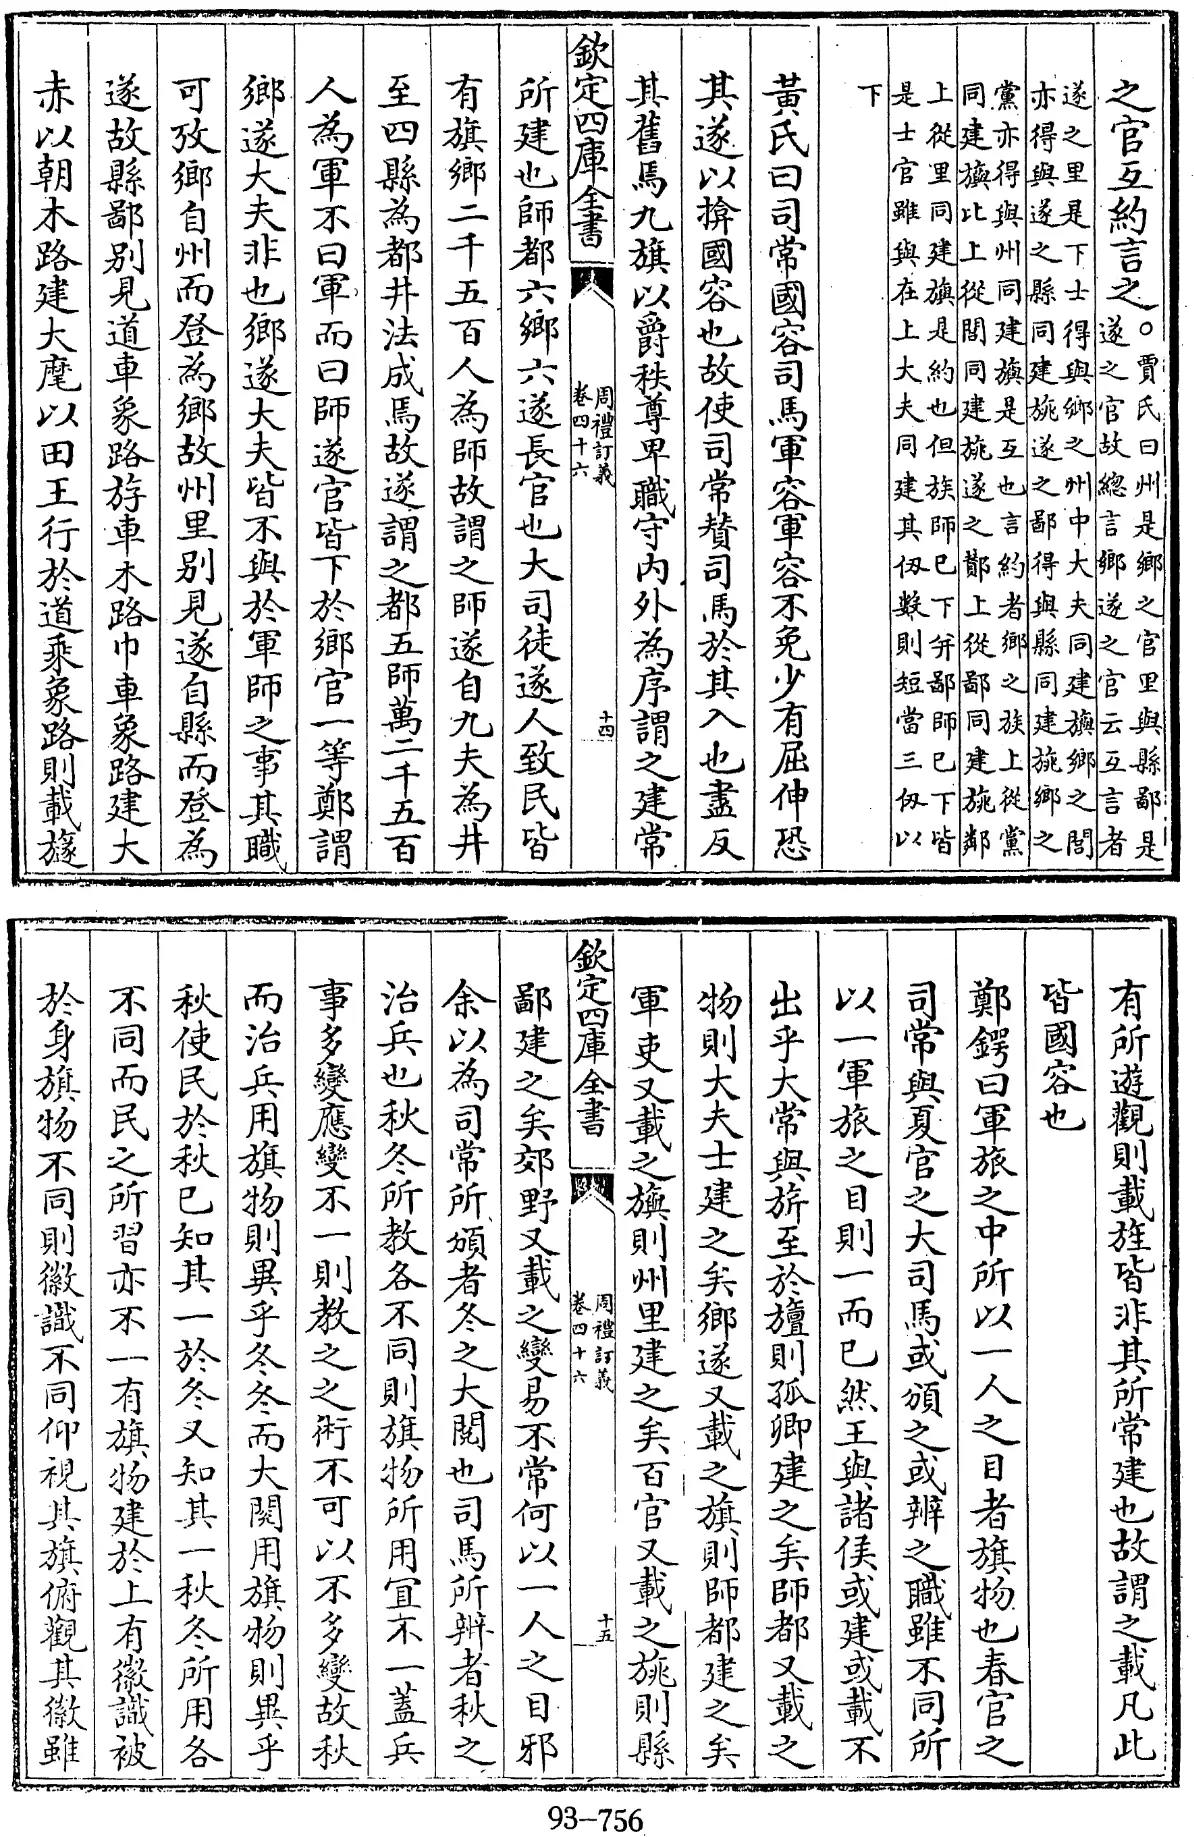 之官互約言之○賈氏曰州是鄉之官里與縣鄙是
遂之官故總言鄉遂之官云互言者
遂之里是下士得與鄉之州中大夫同建旟鄉之閭
亦得與遂之縣同建旐遂之鄙得與縣同建旐鄉之
黨亦得與州同建旟是互也言約者鄉之族上從黨
同建旟比上從閭同建旐遂之酇上從鄙同建旐鄰
上從里同建旟是約也但族師已下并鄙師已下皆
是士官雖與在上大夫同建其仞數則短當三仞以
下
黃氏曰司常國容司馬軍容軍容不免少有屈伸恐
其遂以揜國容也故使司常賛司馬於其入也盡反
其舊焉九旗以爵秩尊卑職守内外為序謂之建常
欽定四庫全書
周禮訂義
卷四十六
十四
所建也師都六鄉六遂長官也大司徒遂人致民皆
有旗鄉二千五百人為師故謂之師遂自九夫為井
至四縣為都井法成焉故遂謂之都五師萬二千五百
人為軍不曰軍而曰師遂官皆下於鄉官一等鄭謂
鄉遂大夫非也鄉遂大夫皆不與於軍師之事其職
可攷鄉自州而登為鄉故州里別見遂自縣而登為
遂故縣鄙別見道車象路斿車木路巾車象路建大
赤以朝木路建大麾以田王行於道乘象路則載旞
有所遊觀則載旌皆非其所常建也故謂之載凡此
皆國容也
鄭鍔曰軍旅之中所以一人之目者旗物也春官之
司常與夏官之大司馬或頒之或辨之職雖不同所
以一軍旅之目則一而已然王與諸侯或建或載不
出乎大常與旂至於旜則孤卿建之矣師都又載之
物則大夫士建之矣鄉遂又載之旗則師都建之矣
軍吏又載之旟則州里建之矣百官又載之旐則縣
欽定四庫全書
周禮訂義
卷四十六
十五
鄙建之矣郊野又載之變易不常何以一人之目邪
余以為司常所頒者冬之大閱也司馬所辨者秋之
治兵也秋冬所教各不同則旗物所用宜不一蓋兵
事多變應變不一則教之之術不可以不多變故秋
而治兵用旗物則異乎冬冬而大閱用旗物則異乎
秋使民於秋已知其一於冬又知其一秋冬所用各
不同而民之所習亦不一有旗物建於上有徽識被
於身旗物不同則徽識不同仰視其旗俯觀其徽雖
93-756